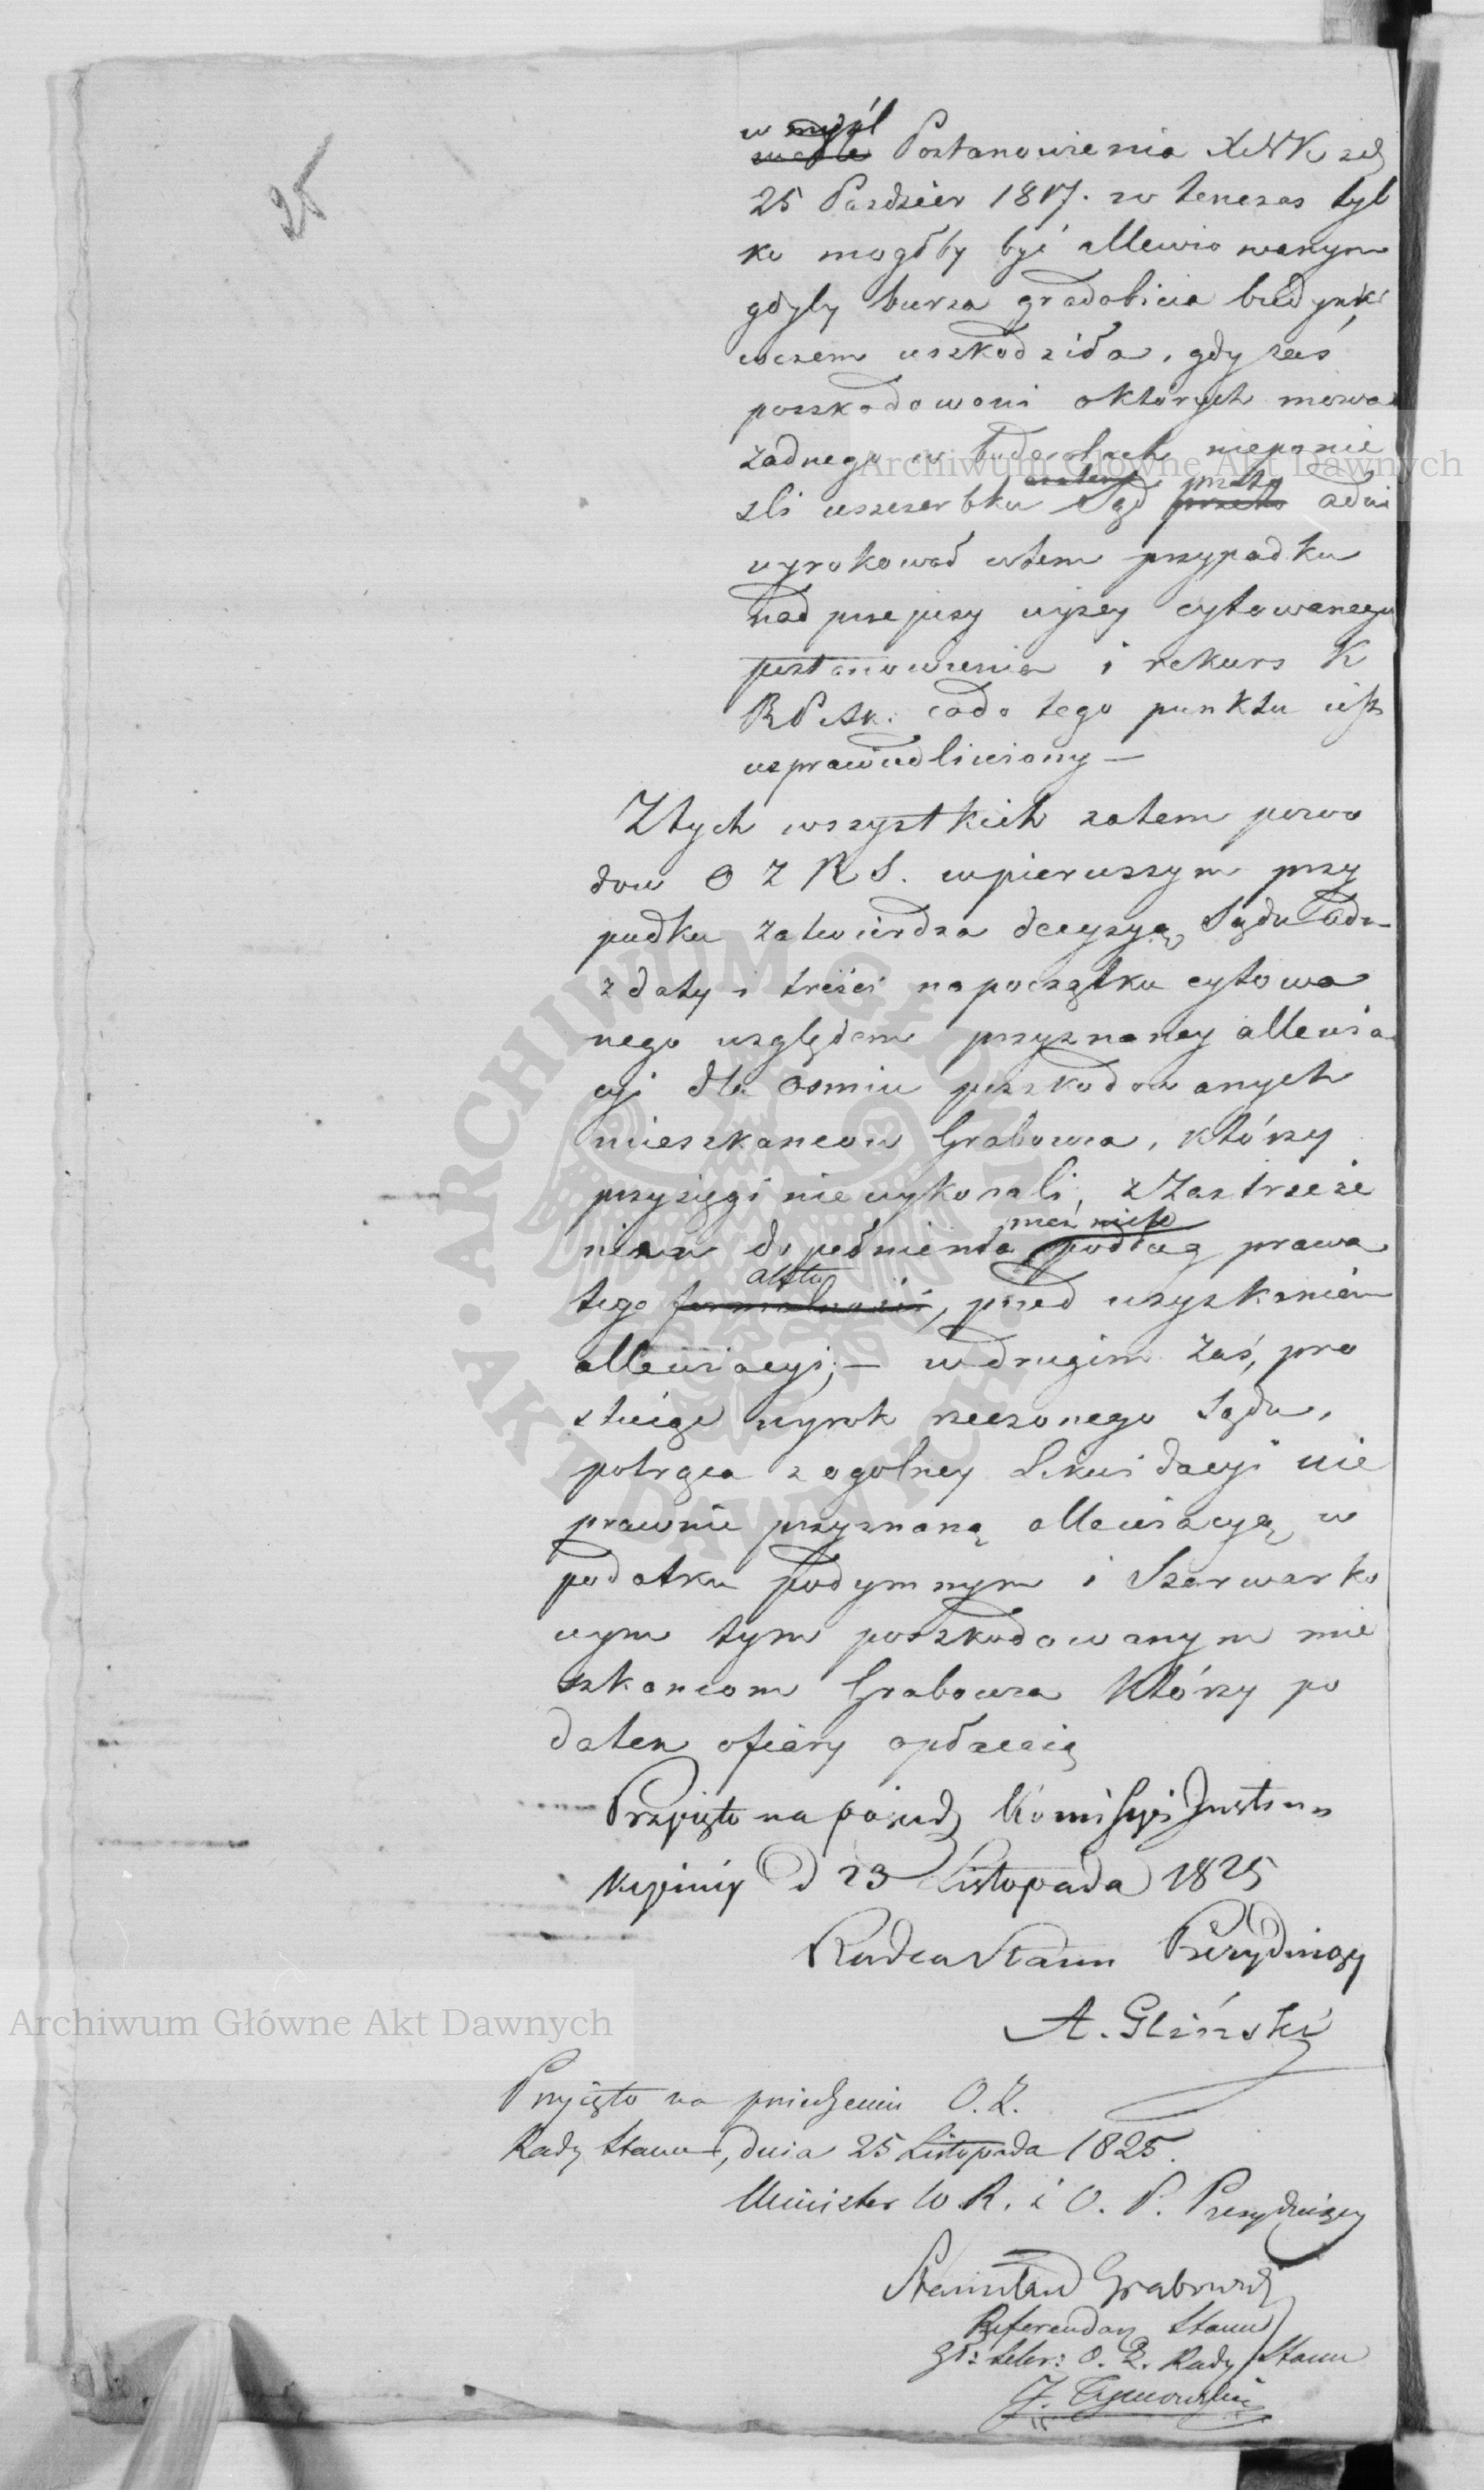 25
w myśl
wedle Postanowienia XNK z d
25 Pazdzier 1817. w tenczas tyl
ko mogłby być allewiowanym
gdyby burza gradobicia budynki
wczem uszkodziła, gdy zaś
poszkodowani o których mowa
żadnego w budowlach nieponie
śli uszczerbku zatem Sąd przeto
wyrokował wtem przypadku
nad przepisy wyzey cytowanego
postanowienia i rekurs K
R P Sk. codo tego punktu jest
usprawiedliwiony —
Ztych wszystkich zatem powo
dow O Z R S. wpierwszym przy
padku zatwierdza decyzyą Sądu Adm
z daty i treści napoczątku cytowa
nego względem przyznaney allewia
cyi dla osmiu poszkodowanych
mieszkancow Grabowca, którzy
przysięgi niewykonali, z Zastrzeże
niem dopełnienia podług prawa
tego aktu formalności, przed uzyskaniem
allewiacyi; — wdrugim zaś, pro
stuiąc wyrok rzeczonego Sądu,
potrąca z ogolney Likwidacyi nie
prawnie przyznaną allewiacyą w
podatku podymnym i Szarwarko
wym tym poszkodowanym mie
szkancom Grabowca którzy po
datek ofiary opłacaią
Przyięto na posiedz Kommissyi Instru
kcyiney d 23 Listopada 1825
Radca Stanu Prezyduiący
A. Gliński
Przyięto na posiedzeniu O. Z.
Rady Stanu, dnia 25 Listopada 1825.
Minister W R. i O. P. Prezyduiący
Stanisław Grabowski
Referendarz Stanu
Sekr: O. Z. Rady Stanu
J. Tymowski
Archiwum Główne Akt Dawnych
Archiwum Główne Akt Dawnych
ARCHIWUM GŁÓWNE · AKT DAWNYCH ·